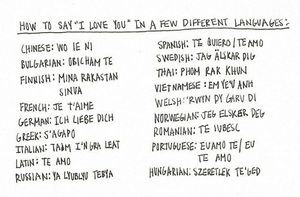 HOW TO SAY "I LOVE YOU" IN A FEW DIFFERENT LANGUAGES:
CHINESE: WO IE NI
BULGARIAN: OBICHAM TE
FINNISH: MINA RAKASTAN
SINVA
FRENCH: JE T'AIME
GERMAN: ICH LIEBE DICH
GREEK: S'AGAPO
ITALIAN: TAIM I'N GRA LEAT
LATIN: TE AMO
RUSSIAN: YA LYUBLYU TEBYA
SPANISH: TE QUIERO/TE AMO
SWEDISH: JAG ÄLSKAR DIG
THAI: PHOM RAK KHUN
VIETNAMESE: EM YEU ANH
WELSH: 'RWYN DY GARU DI
NORWEGIAN: JEG ELSKER DEG
ROMANIAN: TE IUBESC
PORTUGUESE: EU AMO TE/EU
TE AMO
HUNGARIAN: SZERETLEK TE'GED